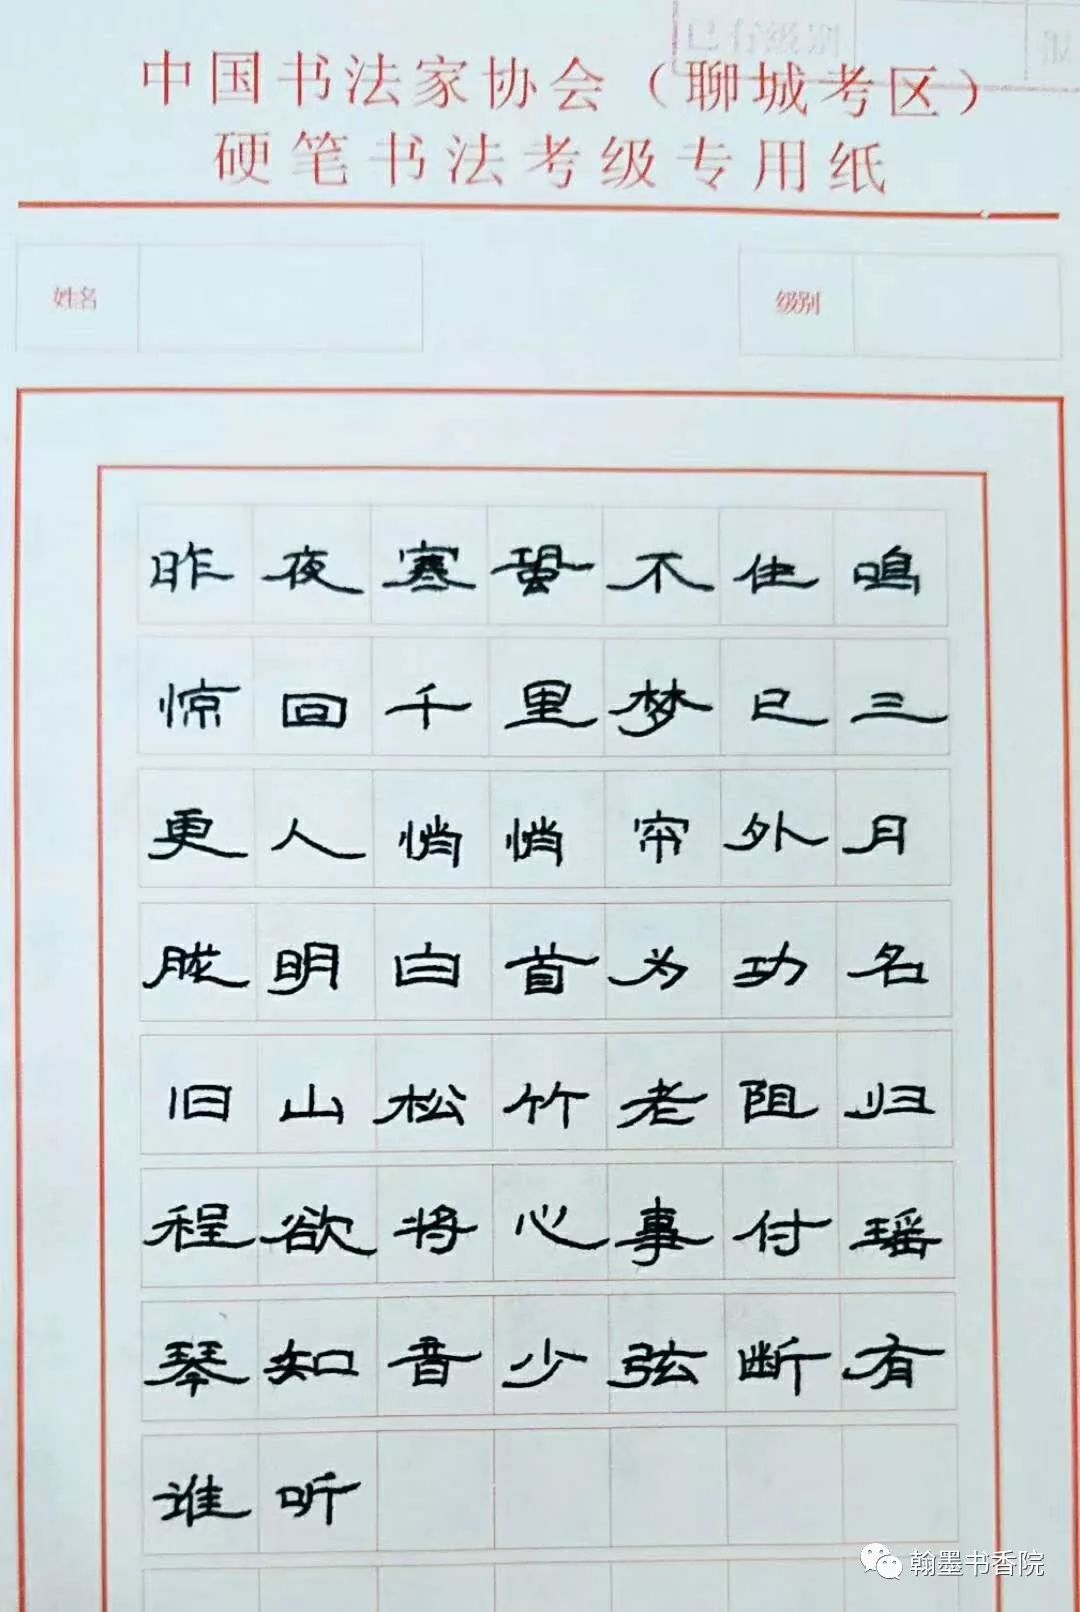 中国书法家协会（聊城考区）
硬笔书法考级专用纸
姓名
级别
昨夜寒蛩不住鸣
惊回千里梦已三
更人悄悄帘外月
胧明白首为功名
旧山松竹老阻归
程欲将心事付瑶
琴知音少弦断有
谁听
翰墨书香院